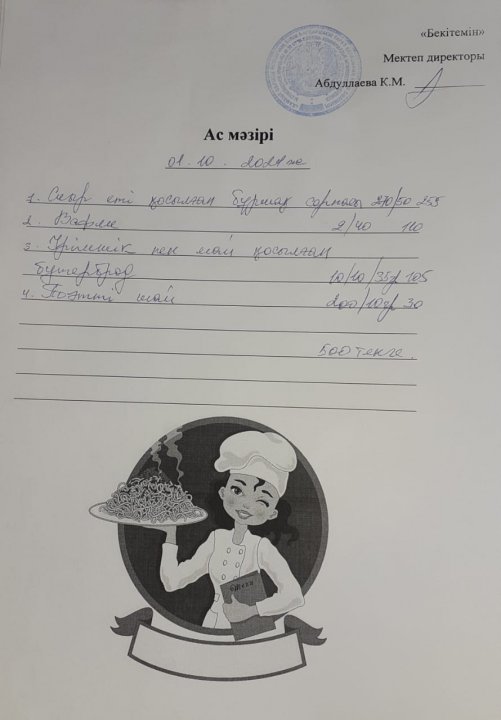 «Бекітемін»
Мектеп директоры
Абдуллаева К.М.
Ас мәзірі
01. 10. 2024 ж
1. Сиыр еті қосылған бұршақ сорпасы 270/50 255
2. Вафли 2/40 110
3. Ірімшік пен май қосылған
бутерброд 10/10/35гр 105
4. Тәтті шай 200/10гр 30
500 теңге.